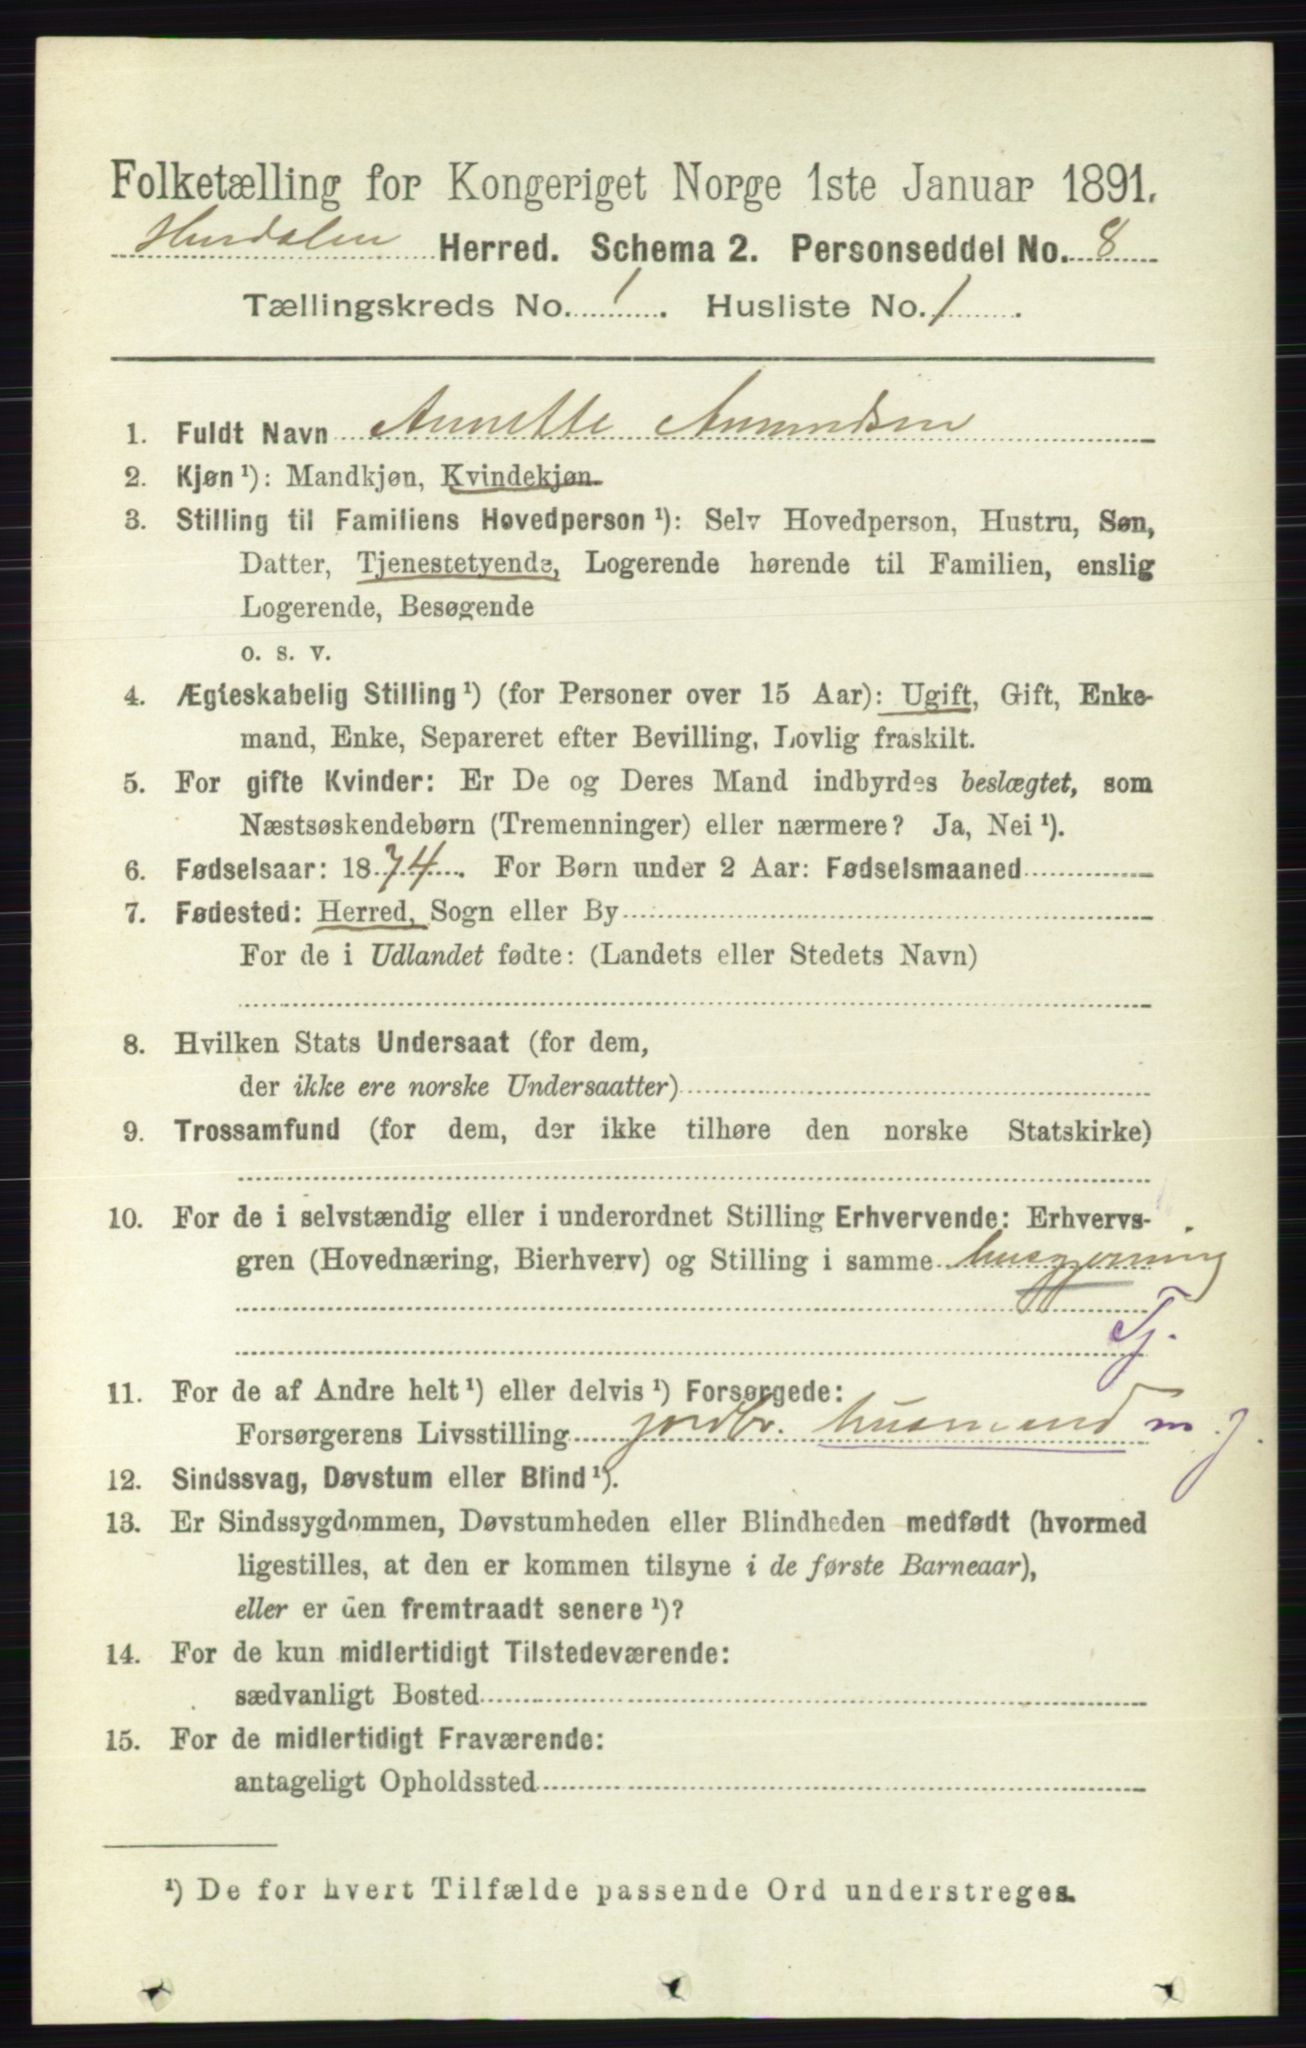 Folketælling for Kongeriget Norge 1ste Januar 1891.
Hurdalen Herred. Schema 2. Personseddel No. 8
Tællingskreds No. 1. Husliste No. 1.
1. Fuldt Navn Annette Amundsen
2. Kjøn ¹): Mandkjøn, Kvindekjøn.
3. Stilling til Familiens Hovedperson ¹): Selv Hovedperson, Hustru, Søn,
Datter, Tjenestetyende, Logerende hørende til Familien, enslig
Logerende, Besøgende
o. s. v.
4. Ægteskabelig Stilling ¹) (for Personer over 15 Aar): Ugift, Gift, Enke-
mand, Enke, Separeret efter Bevilling, Lovlig fraskilt.
5. For gifte Kvinder: Er De og Deres Mand indbyrdes beslægtet, som
Næstsøskendebørn (Tremenninger) eller nærmere? Ja, Nei ¹).
6. Fødselsaar: 1874. For Børn under 2 Aar: Fødselsmaaned
7. Fødested: Herred, Sogn eller By
For de i Udlandet fødte: (Landets eller Stedets Navn)
8. Hvilken Stats Undersaat (for dem,
der ikke ere norske Undersaatter)
9. Trossamfund (for dem, der ikke tilhøre den norske Statskirke)
10. For de i selvstændig eller i underordnet Stilling Erhvervende: Erhvervs-
gren (Hovednæring, Bierhverv) og Stilling i samme husgjerning
Tj.
11. For de af Andre helt ¹) eller delvis ¹) Forsørgede:
Forsørgerens Livsstilling jordbr. husmand m. j.
12. Sindssvag, Døvstum eller Blind ¹).
13. Er Sindssygdommen, Døvstumheden eller Blindheden medfødt (hvormed
ligestilles, at den er kommen tilsyne i de første Barneaar),
eller er den fremtraadt senere ¹)?
14. For de kun midlertidigt Tilstedeværende:
sædvanligt Bosted
15. For de midlertidigt Fraværende:
antageligt Opholdssted
¹) De for hvert Tilfælde passende Ord understreges.